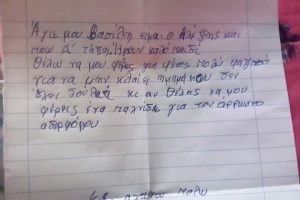 Άγιε μου Βασίλη είμαι ο Αλέξης και
πάω Α' τάξη. Ήμουν καλό παιδί
Θέλω να μου φέρεις για φέτος πολύ φαγητό
για να μην κλαίει η μαμά μου δεν
έχει δουλειά κι αν θέλεις να μου
φέρεις ένα παιχνίδι για τον άρρωστο
αδερφό μου
πολύ